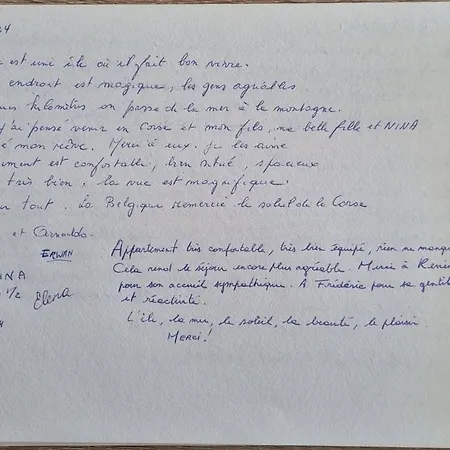 24
est une île où il fait bon vivre.
endroit est magique, les gens agréables
kilomètres on passe de la mer à la montagne.
j'ai pensé venir en Corse et mon fils, ma belle fille et NINA
é mon rêve. Merci à eux. Je les aime
ment est confortable, bien situé, spacieux
très bien, la vue est magnifique.
tout. La Belgique remercie le soleil de la Corse
et Arnaldo.
ERWAN
NINA
1/2 Elena
Appartement très confortable, très bien équipé, rien ne manque
Cela rend le séjour encore plus agréable. Merci à René
pour son accueil sympathique. A Frédéric pour sa gentil
et réactivité.
L'île, la mer, le soleil, la beauté, le plaisir
MERCI!